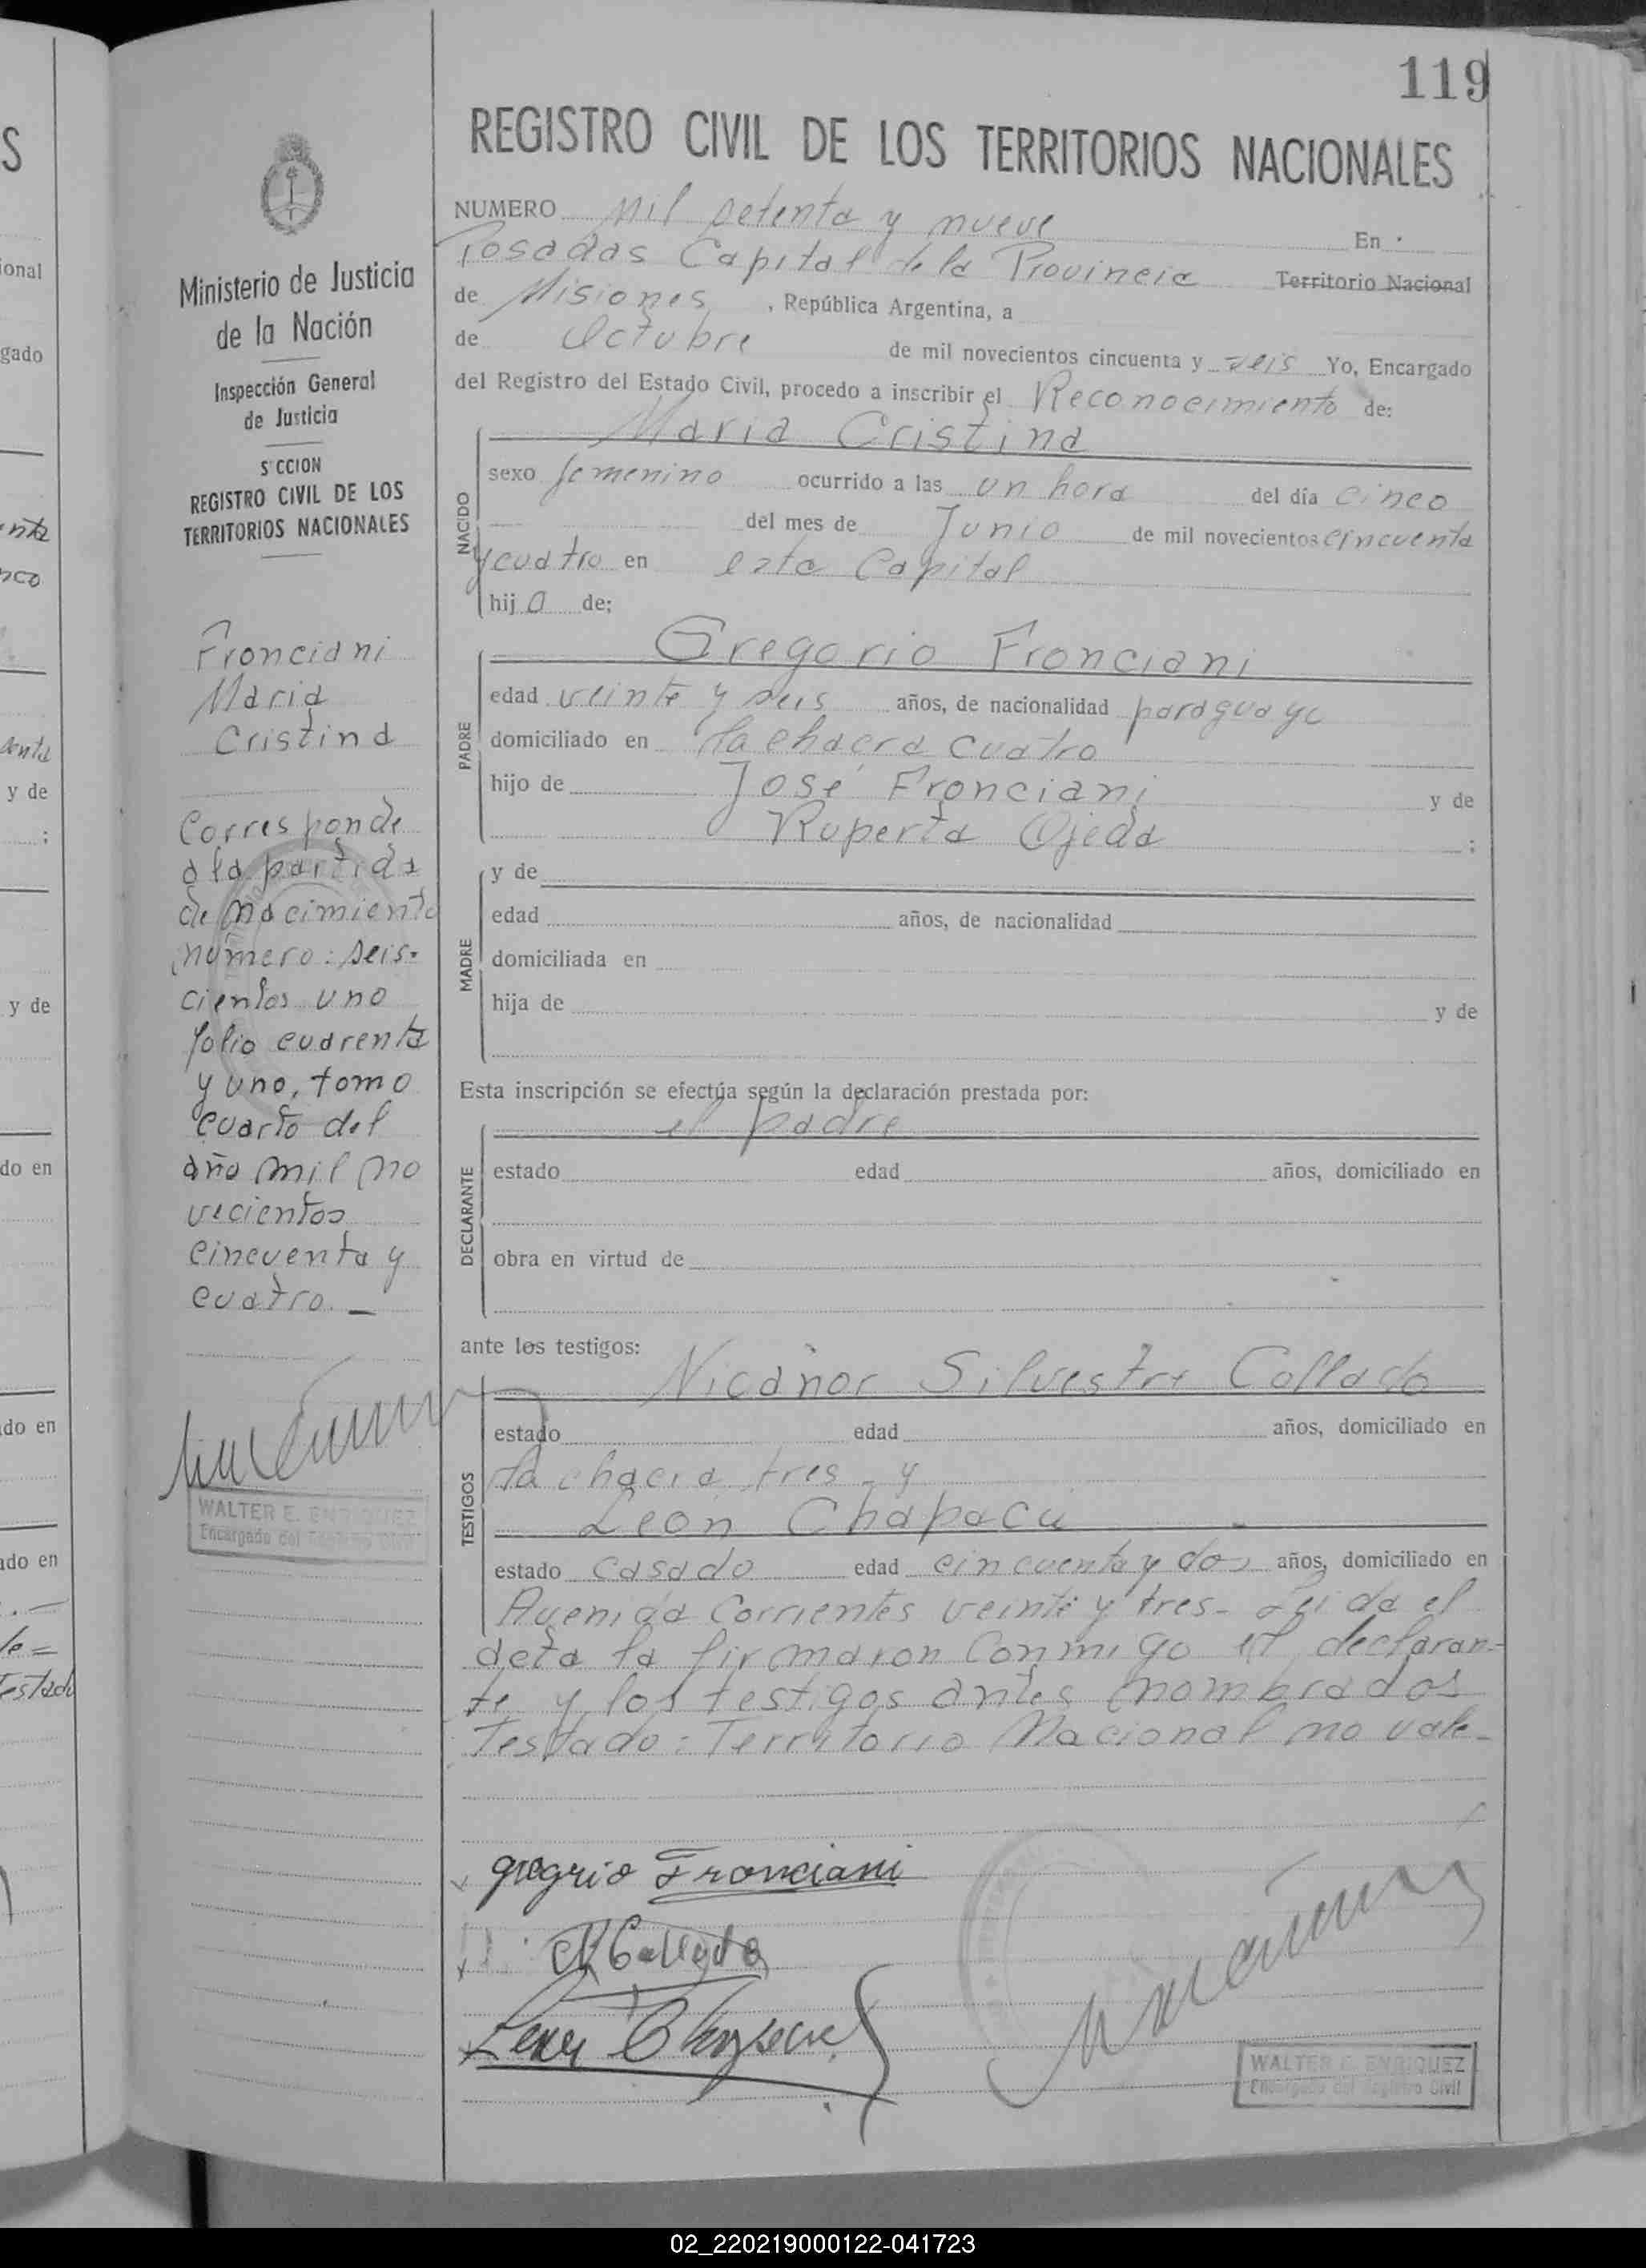 119
REGISTRO CIVIL DE LOS TERRITORIOS NACIONALES
Ministerio de Justicia
de la Nación
Inspección General
de Justicia
S CCION
REGISTRO CIVIL DE LOS
TERRITORIOS NACIONALES
Fronciani
Maria
Cristina
Corresponde
a la partida
de nacimiento
número: seis-
cientos uno
folio cuarenta
y uno, tomo
cuarto del
año mil no
vecientos
cincuenta y
cuatro. _
WALTER E. ENRIQUEZ
Encargado del Registro Civil
NUMERO mil setenta y nueve En
Posadas Capital de la Provincia Territorio Nacional
de Misiones, República Argentina, a
de Octubre de mil novecientos cincuenta y seis Yo, Encargado
del Registro del Estado Civil, procedo a inscribir el Reconocimiento de:
NACIDO
Maria Cristina
sexo femenino ocurrido a las un hora del día cinco
del mes de Junio de mil novecientos cincuenta
y cuatro en esta Capital
hij a de;
PADRE
Gregorio Fronciani
edad veinte y seis años, de nacionalidad paraguaya
domiciliado en la chacra cuatro
hijo de José Fronciani y de
Ruperta Ojeda ;
MADRE
y de
edad años, de nacionalidad
domiciliada en
hija de y de
Esta inscripción se efectúa según la declaración prestada por:
DECLARANTE
el padre
estado edad años, domiciliado en
obra en virtud de
ante los testigos:
TESTIGOS
Nicanor Silvestre Collado
estado edad años, domiciliado en
la chacra tres - y
León Chapacú
estado casado edad cincuenta y dos años, domiciliado en
Avenida Corrientes veinte y tres - Leida el
acta la firmaron conmigo el declaran-
te y los testigos antes nombrados
Testado: Territorio Nacional no vale -
gregrio Fronciani
WALTER E. ENRIQUEZ
Encargado del Registro Civil
02_220219000122-041723